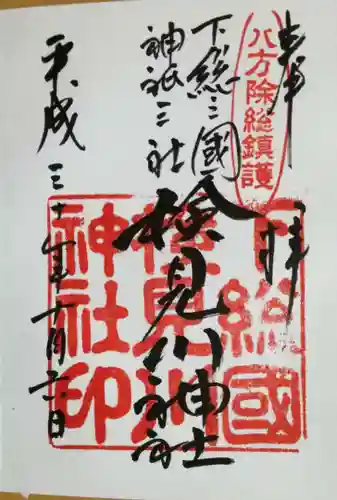 奉拝
八方除総鎮護
下総三國
神祇三社
検見川神社
下総國
検見川
神社印
平成三十年六月六日